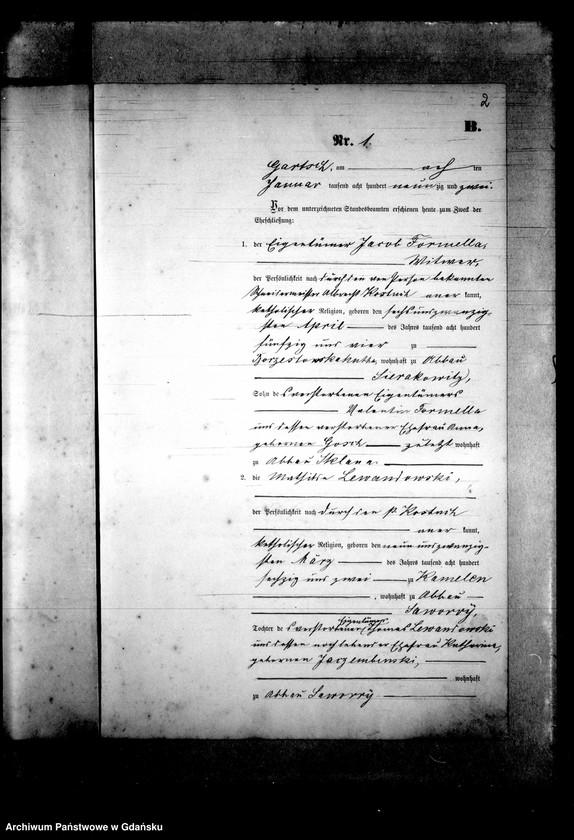 2
B.
Nr. 1.
Gartsch, am acht ten
Januar tausend acht hundert neunzig und zwei.
Vor dem unterzeichneten Standesbeamten erschienen heute zum Zweck der
Eheschließung:
1. der Eigentümer Jacob Formella,
Witwer,
der Persönlichkeit nach durch den von Person bekannten
Schneidermeister Albrecht Kostuch aner kannt,
katholischer Religion, geboren den sechsundzwanzig-
sten April des Jahres tausend acht hundert
fünfzig und vier zu
wohnhaft zu Abbau
Sierakowitz,
Sohn des verstorbenen Eigentümers
Valentin Formella
und dessen verstorbener Ehefrau Anna,
geborenen Gosch zuletzt wohnhaft
zu Abbau Sklana.
2. die Mathilde Lewandowski,
der Persönlichkeit nach durch den p. Kostuch
aner kannt,
katholischer Religion, geboren den neunundzwanzig-
sten März des Jahres tausend acht hundert
sechzig und zwei zu Kamelen
, wohnhaft zu Abbau
Saworry,
Eigentümers
Tochter des verstorbenen Thomas Lewandowski
und dessen noch lebender Ehefrau Katharina,
geborenen
wohnhaft
zu Abbau Saworry
Archiwum Państwowe w Gdańsku